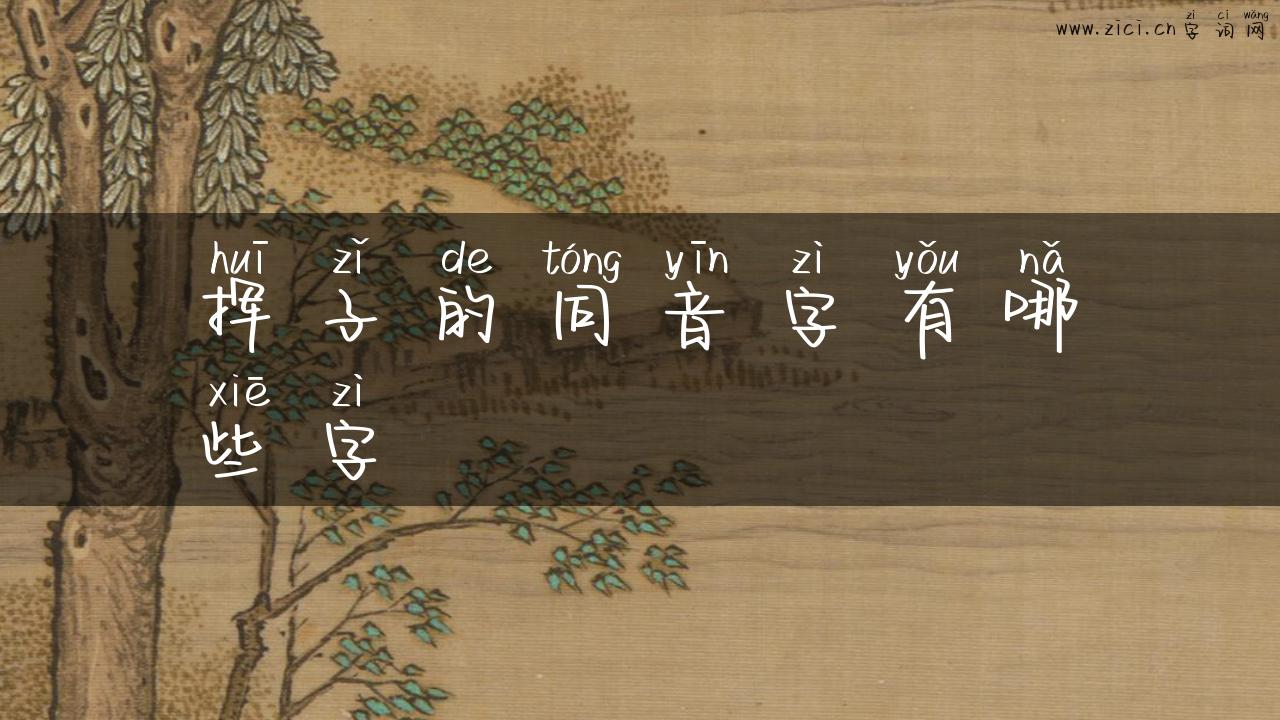 zì cí wǎng
www.zici.cn 字词网
huī zǐ de tóng yīn zì yǒu nǎ
挥子的同音字有哪
xiē zì
些字